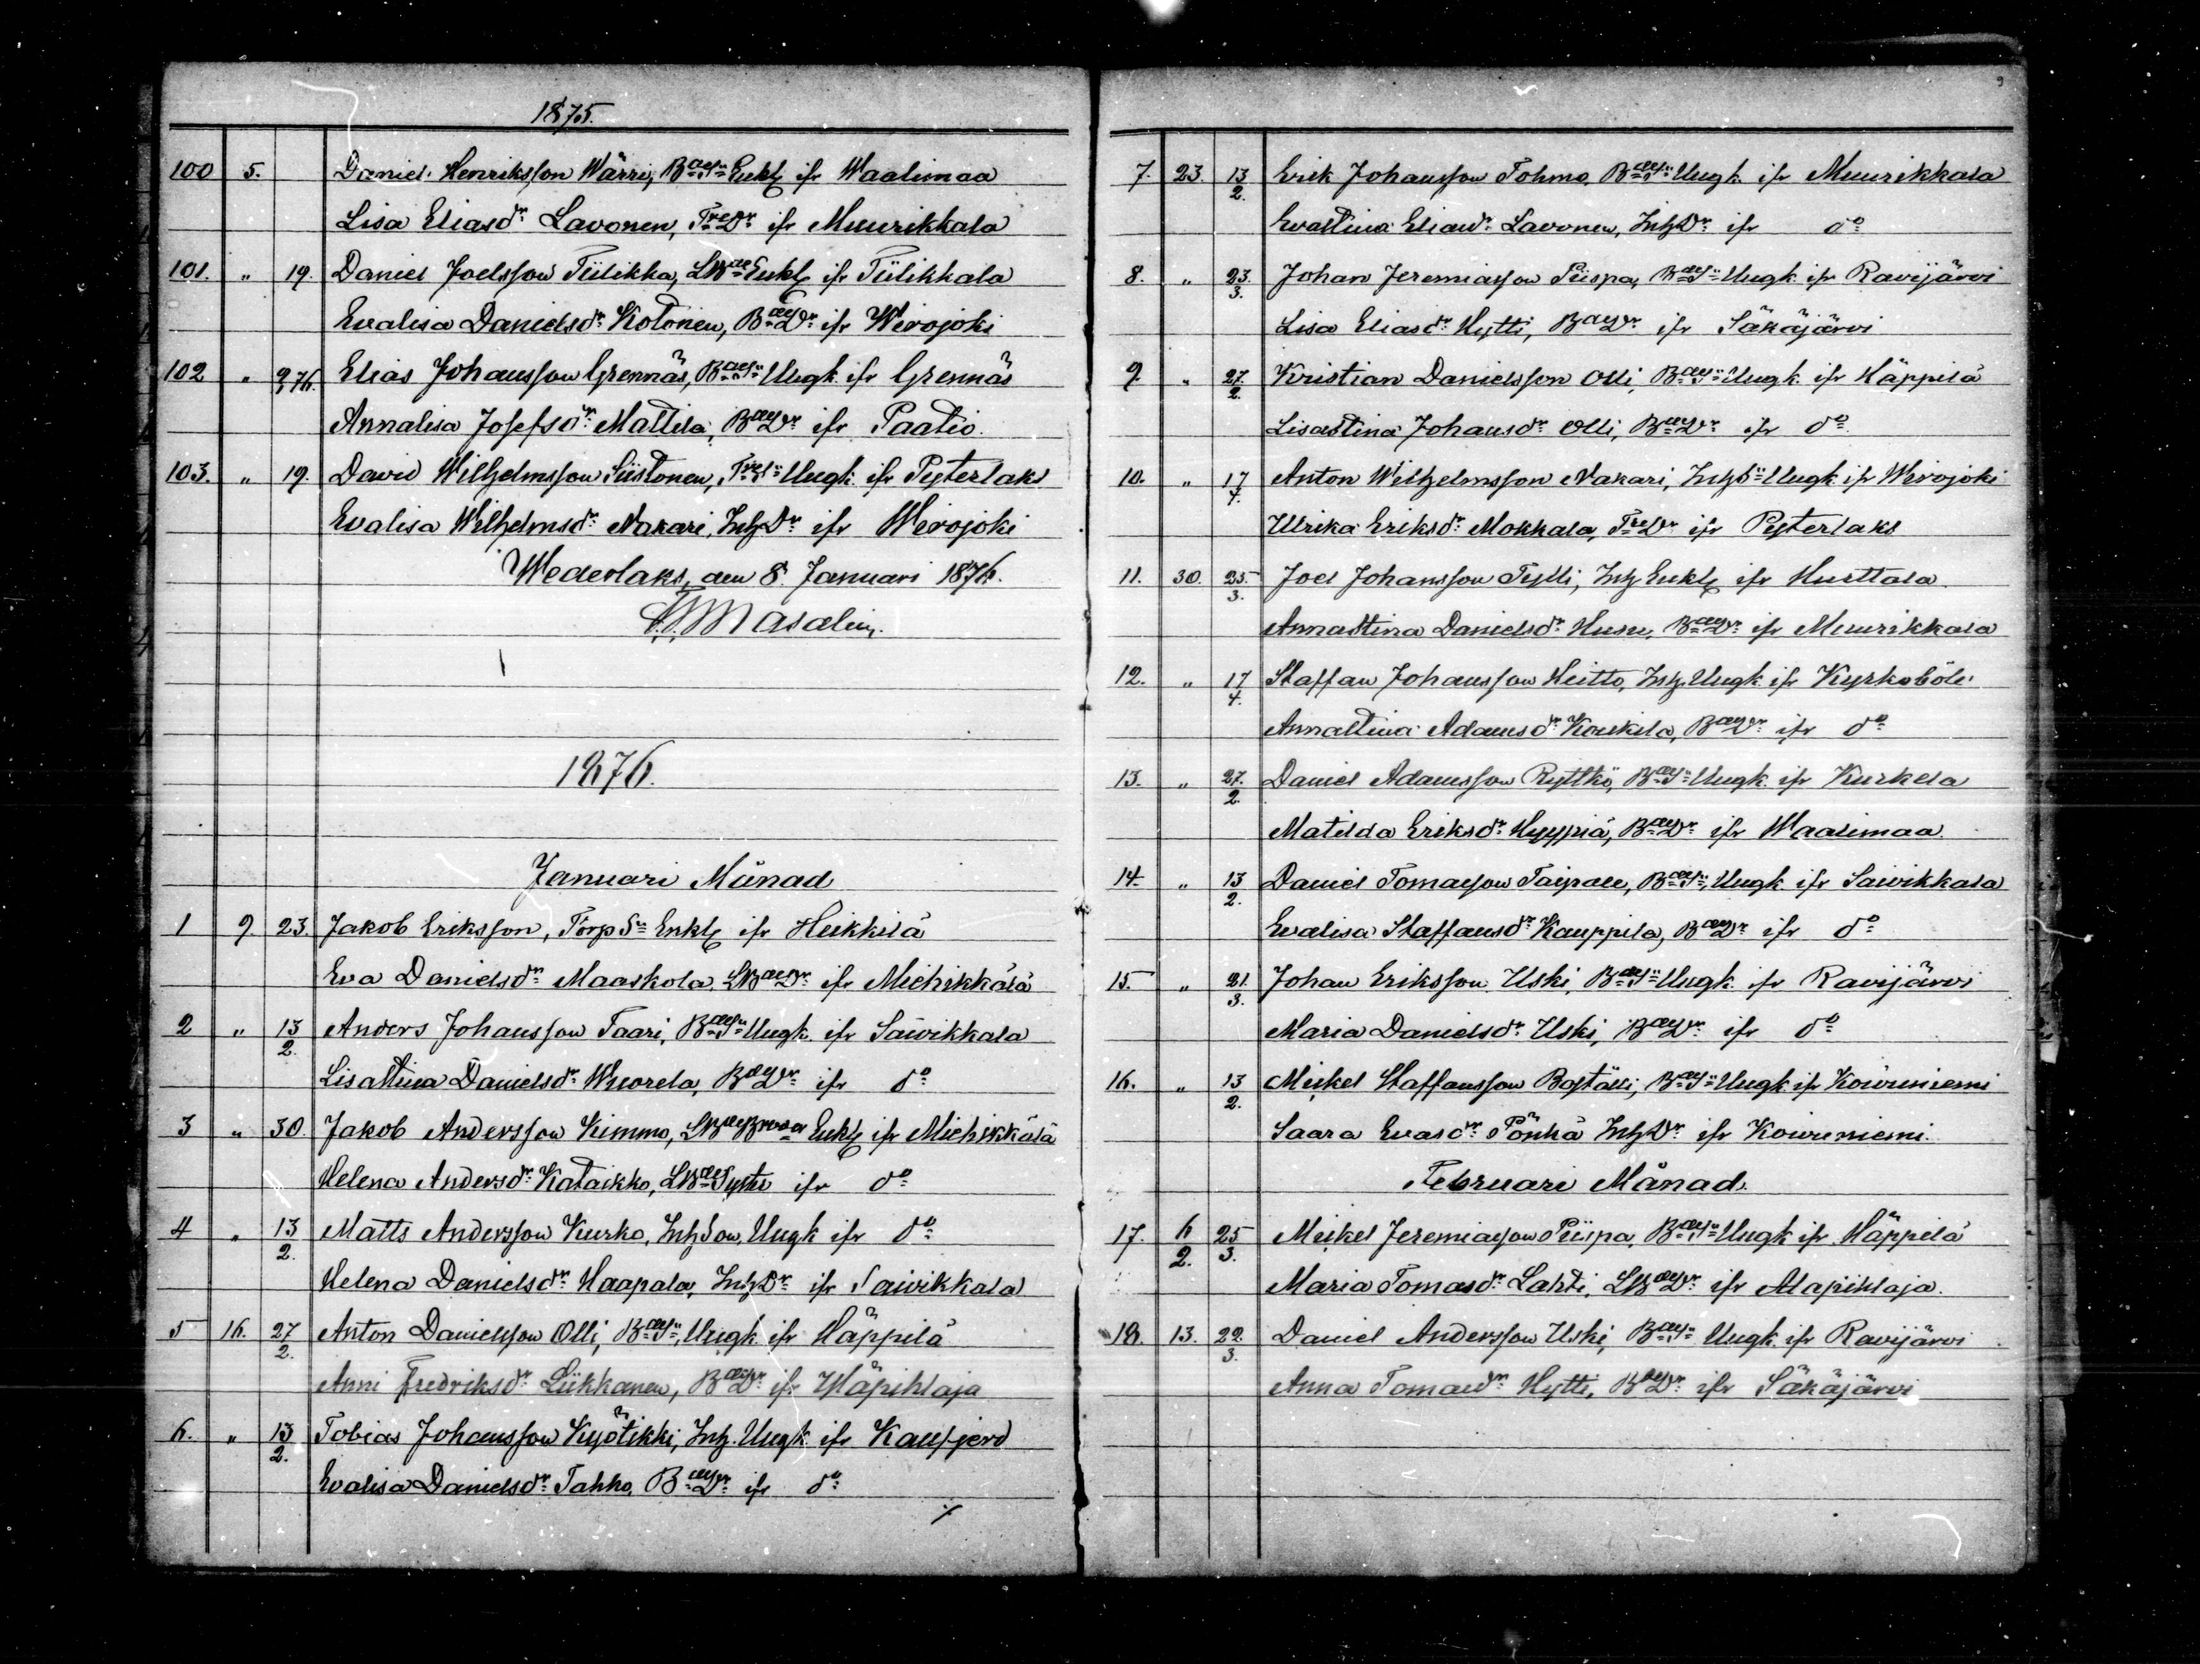 1875.
100 5. Daniel Henriksson Wärri, Bdes Sn Enkl ifr Waalimaa
Lisa Eliasdr Lavonen, Trpe Dr ifr Muurikkala
101. " 19. Daniel Joelsson Tülikka, Enkl ifr Tülikkala
Evalisa Danielsdr Kotonen, Bde Dr ifr Wirojoki
102 " 9/76. Elias Johansson Grennäs, Bdes Sn Ungk. ifr Grennäs
Annalisa Josefsdr Mattila, Bde Dr ifr Paatio.
103. " 19. David Wilhelmsson Siistonen, Ungk. ifr Pyterlaks
Evalisa Wilhelmsdr Nakari, Inh Dr ifr Wirojoki
Wederlaks, den 8. Januari 1876.
Masalin.
1876.
Januari Månad
1 9. 23. Jakob Eriksson, Torp Sn Enkl ifr Heikkilä
Eva Danielsdr Maaskola, ifr Miehikkälä
2 " 13/2. Anders Johansson Taari, Bdes Sn Ungk. ifr Saivikkala
Lisastina Danielsdr Wuorela, Bde Dr ifr do
3 " 30. Jakob Andersson Kimmo, Enkl ifr Miehikkälä
Helena Andersdr Kataikko, ifr do
4 " 13/2. Matts Andersson Kurko, Inh Son, Ungk ifr do
Helena Danielsdr Haapala, Inh Dr ifr Saivikkala
5 16. 27/2. Anton Danielsson Olli, Bdes Sn, Ungk. ifr Häppilä
Anni Fredriksdr Liikkanen, Bde Dr ifr
6. " 13/2. Tobias Johansson Kyötikki, Inh. Ungk. ifr Kansjerd
Evalisa Danielsdr Tahko, Bde Dr ifr do
9
7. 23 13/2. Erik Johansson Tohmo, Bdes Sn Ungk. ifr Muurikkala
Evastina Eliasdr Lavonen, Inh Dr ifr do
8. " 23./3. Johan Jeremiasson Piispa, Bdes Sn Ungk. ifr Ravijärvi
Lisa Eliasdr Hytti, Bde Dr ifr Säkäjärvi
9. " 27./2. Kristian Danielsson Olli, Bdes Sn Ungk. ifr Häppilä
Lisastina Johansdr Olli, Bde Dr ifr do
10. " 17/4. Anton Wilhelmsson Nakari, Inh S. Ungk ifr Wirojoki
Ulrika Eriksdr Mokkala, ifr Pyterlaks
11. 30. 25./3. Joel Johansson Tylli, Inh Enkl ifr Hurttala.
Annastina Danielsdr Husu, Bde Dr ifr Muurikkala
12. " 17/4. Staffan Johansson Heitto, Inh. Ungk. ifr Kyrkoböle
Annastina Adamsdr Koukila, Bde Dr ifr do
13. " 27./2. Daniel Adamsson Ryttkö, Bdes Sn Ungk. ifr Kurkela
Matilda Eriksdr Hyypiä, Bde Dr ifr Waalimaa.
14. " 13/2. Daniel Tomasson Taipale, Bdes Sn, Ungk. ifr Saivikkala
Evalisa Staffansdr Kauppila, Bde Dr ifr do
15. " 21./3. Johan Eriksson Uski, Bdes Sn Ungk. ifr Ravijärvi
Maria Danielsdr Uski, Bde Dr ifr do
16. " 13/2. Mickel Staffansson Baställi, Bdes Sn Ungk ifr Koivuniemi
Saara Evasdr Pönkä Inh Dr ifr Koivuniemi.
Februari Månad.
17. 6/2. 25/3. Mickel Jeremiasson Piispa, Bdes Sn Ungk. ifr Häppilä
Maria Tomasdr Lahti, ifr Alapihlaja.
18. 13. 22./3. Daniel Andersson Uski, Bdes Sn Ungk. ifr Ravijärvi
Anna Tomasdr Hytti, Bde Dr ifr Säkäjärvi